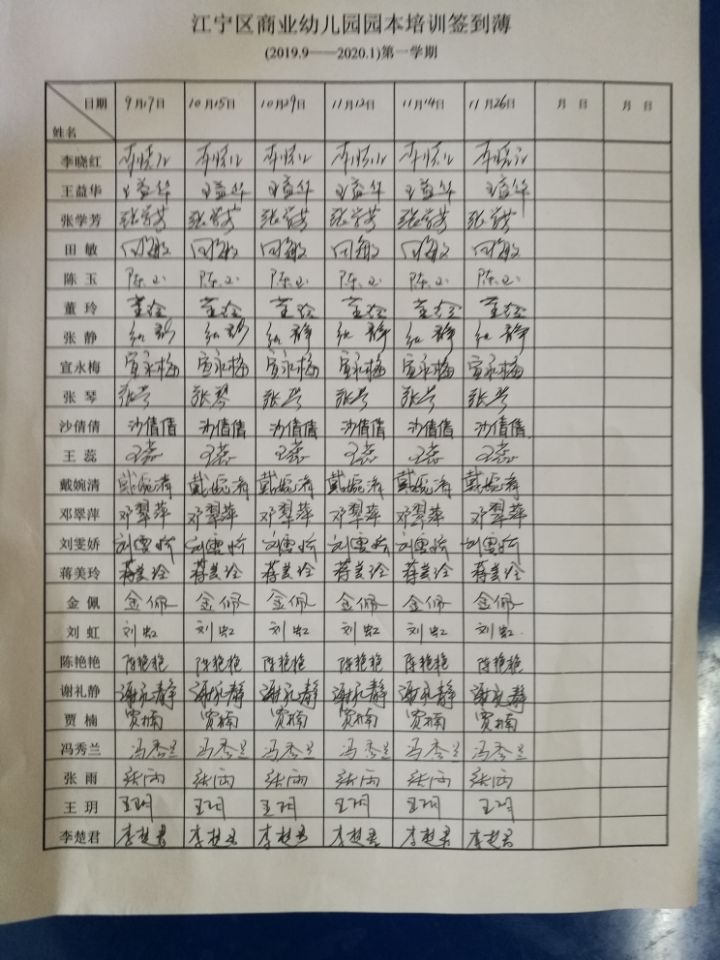 江宁区商业幼儿园园本培训签到薄
(2019.9——2020.1)第一学期
日期 9月17日 10月15日 10月29日 11月12日 11月14日 11月26日 月 日 月 日
姓名
李晓红 李晓红 李晓红 李晓红 李晓红 李晓红 李晓红
王益华 王益华 王益华 王益华 王益华 王益华 王益华
张学芳 张学芳 张学芳 张学芳 张学芳 张学芳 张学芳
田敏 田敏 田敏 田敏 田敏 田敏 田敏
陈玉 陈玉 陈玉 陈玉 陈玉 陈玉 陈玉
董玲 董玲 董玲 董玲 董玲 董玲 董玲
张静 张静 张静 张静 张静 张静 张静
宣永梅 宣永梅 宣永梅 宣永梅 宣永梅 宣永梅 宣永梅
张琴 张琴 张琴 张琴 张琴 张琴 张琴
沙倩倩 沙倩倩 沙倩倩 沙倩倩 沙倩倩 沙倩倩 沙倩倩
王蕊 王蕊 王蕊 王蕊 王蕊 王蕊 王蕊
戴婉清 戴婉清 戴婉清 戴婉清 戴婉清 戴婉清 戴婉清
邓翠萍 邓翠萍 邓翠萍 邓翠萍 邓翠萍 邓翠萍 邓翠萍
刘雯娇 刘雯娇 刘雯娇 刘雯娇 刘雯娇 刘雯娇 刘雯娇
蒋美玲 蒋美玲 蒋美玲 蒋美玲 蒋美玲 蒋美玲 蒋美玲
金佩 金佩 金佩 金佩 金佩 金佩 金佩
刘虹 刘虹 刘虹 刘虹 刘虹 刘虹 刘虹
陈艳艳 陈艳艳 陈艳艳 陈艳艳 陈艳艳 陈艳艳 陈艳艳
谢礼静 谢礼静 谢礼静 谢礼静 谢礼静 谢礼静 谢礼静
贾楠 贾楠 贾楠 贾楠 贾楠 贾楠 贾楠
冯秀兰 冯秀兰 冯秀兰 冯秀兰 冯秀兰 冯秀兰 冯秀兰
张雨 张雨 张雨 张雨 张雨 张雨 张雨
王玥 王玥 王玥 王玥 王玥 王玥 王玥
李楚君 李楚君 李楚君 李楚君 李楚君 李楚君 李楚君